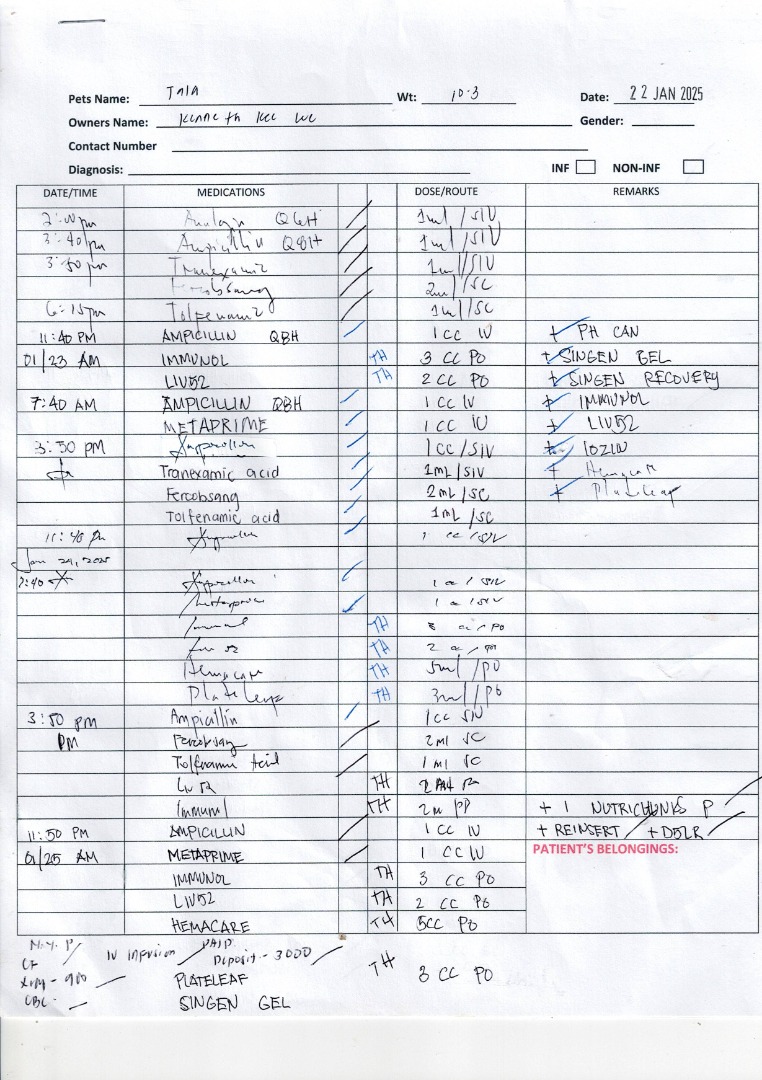 Pets Name: TAIA Wt: 10.3 Date: 22 JAN 2025
Owners Name: Kenneth Kee Gender:
Contact Number
Diagnosis: INF NON-INF
DATE/TIME MEDICATIONS DOSE/ROUTE REMARKS
2:00pm Q6H 1ml/SIV
3:40pm Ampicillin Q8H 1ml/SIV
3:50pm Tranexamic 1ml/SIV
Fercobsang 2ml/SC
6:15pm Tolfenamic 1ml/SC
11:40 PM AMPICILLIN Q8H 1 CC IV + PH CAN
01/23 AM IMMUNOL TH 3 CC PO + SINGEN GEL
LIV52 TH 2 CC PO + SINGEN RECOVERY
7:40 AM AMPICILLIN Q8H 1 CC IV + IMMUNOL
METAPRIME 1 CC IV + LIV52
3:50 PM Ampicillin 1CC/SIV IOZIN
Tranexamic acid 1mL/SIV + Hemacare
Fercobsang 2mL/SC + Plateleaf
Tolfenamic acid 1mL/SC
11:40 pm Ampicillin 1 cc/SIV
Jan 24, 2025
7:40 Ampicillin 1 cc/SIV
Metaprime 1 cc/SIV
Immunol TH 3 cc/PO
Liv 52 TH 2 cc/PO
Hemacare TH 5ml/PO
Plateleaf TH 3ml/PO
3:50 PM Ampicillin 1CC SIV
PM Fercobsang 2ml SC
Tolfenamic Acid 1 ml SC
Liv 52 TH
Immunol TH + 1 NUTRICHUNKS P
11:50 PM AMPICILLIN 1 CC IV + REINSERT + D5LR
01/25 AM METAPRIME 1 CC IV PATIENT'S BELONGINGS:
IMMUNOL TH 3 CC PO
LIV52 TH 2 CC PO
HEMACARE TH 5CC PO
IV Infusion PAID
Deposit - 3000
CF
PLATELEAF TH 3 CC PO
CBC -
SINGEN GEL